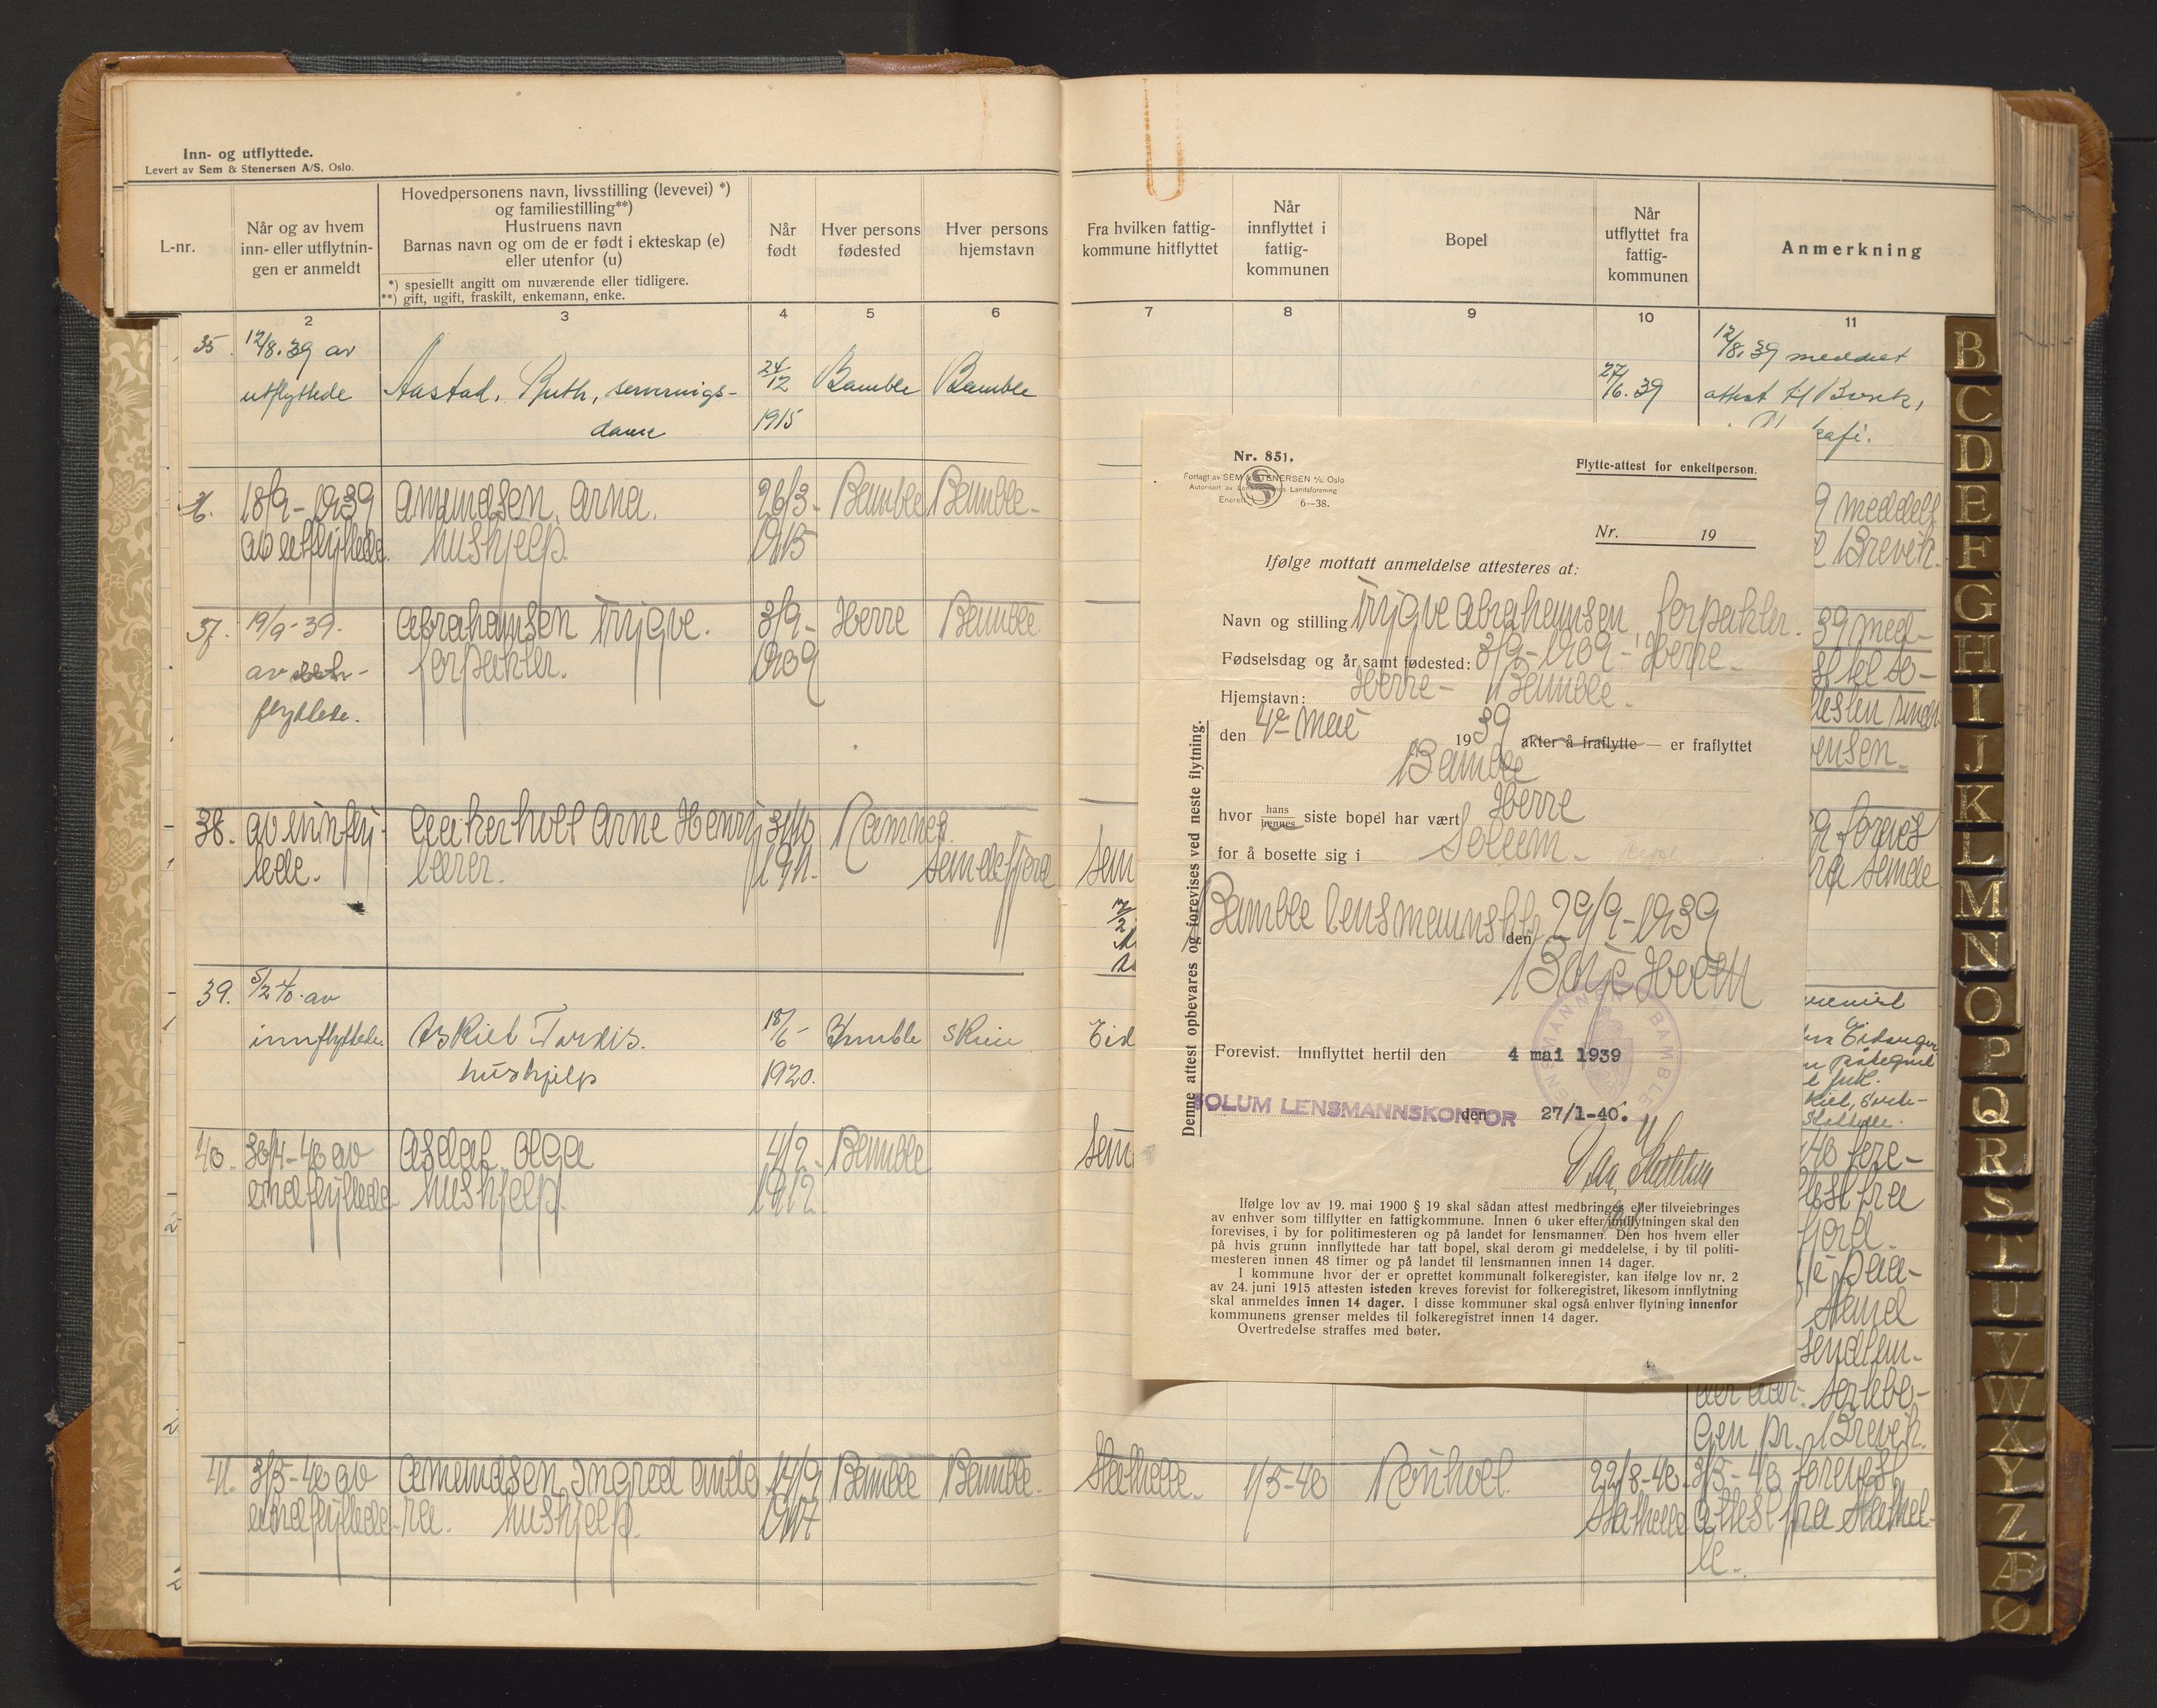 Inn- og utflyttede.
Levert av Sem & Stenersen A/S, Oslo.
L-nr.
Når og av hvem
inn- eller utflytnin-
gen er anmeldt
Hovedpersonens navn, livsstilling (levevei) *)
og familiestilling**)
Hustruens navn
Barnas navn og om de er født i ekteskap (e)
eller utenfor (u)
*) spesiellt angitt om nuværende eller tidligere.
**) gift, ugift, fraskilt, enkemann, enke.
Når
født
Hver persons
fødested
Hver persons
hjemstavn
2 3 4 5 6
35. 12/8.39 av
utflyttede Aastad, Ruth, serverings- 24/12 Bamble Bamble
dame 1915
36. 18/9-1939 Amundsen, Arna. 26/3- Bamble Bamble-
av utflyttede. hushjelp. 1915
37. 19/9-39. Abrahamsen Trygve. 3/9- Herre Bamble
av ut- forpakter. 1909
flyttede.
38. av innfly- Aakerholt Arne Henry 31/10 Ramnes.
tede. lærer. 1911. Sandefjord
39. 5/2 40. av
innflyttede. Askiel Tordis. 18/6- Bamble Skien
hushjelp 1920.
40. 30/4-40 av Asdal, Olga 4/2- Bamble
indflyttede- hushjelp. 1912.
41. 3/5-40 av Amundsen, Ingrid Ando- 14/9 Bamble Bamble.
indflyttede- ra. hushjelp. 1917
Fra hvilken fattig-
kommune hitflyttet
Når
innflyttet i
fattig-
kommunen
Bopel
Når
utflyttet fra
fattig-
kommunen
Anmerkning
7 8 9 10 11
12/8.39 meddelt
27/6.39 attest til Brevik,
kafé.
9 meddelt
Brevik.
39 med-
Eid
der
Gen pr. Brevik.
Stathelle. 1/5-40 Rønholt. 22/8-40. 3/5-40 forevist
Stathelle attest fra Stathel-
le.
Nr. 851.
Forlagt av SEM & STENERSEN A/S, Oslo
6—38.
Flytte-attest for enkeltperson.
Nr. 19
Ifølge mottatt anmeldelse attesteres at:
Navn og stilling Trygve Abrahamsen, forpakter.
Fødselsdag og år samt fødested: 3/9-1909- Herre-
Hjemstavn: Herre- Bamble.
den 4de mai 1939 akter å fraflytte — er fraflyttet
Bamble
hvor hans hennes siste bopel har vært Herre
for å bosette sig i Solum-
Bamble lensmannsktr. den 29/9-1939
LENSMANNEN BAMBLE
Forevist. Innflyttet hertil den 4 mai 1939
SOLUM LENSMANNSKONTOR den 27/1-40.
Ifølge lov av 19. mai 1900 § 19 skal sådan attest medbringes eller tilveiebringes
av enhver som tilflytter en fattigkommune. Innen 6 uker efter innflytningen skal den
forevises, i by for politimesteren og på landet for lensmannen. Den hos hvem eller
på hvis grunn innflyttede har tatt bopel, skal derom gi meddelelse, i by til politi-
mesteren innen 48 timer og på landet til lensmannen innen 14 dager.
I kommune hvor der er oprettet kommunalt folkeregister, kan ifølge lov nr. 2
av 24. juni 1915 attesten isteden kreves forevist for folkeregistret, likesom innflytning
skal anmeldes innen 14 dager. I disse kommuner skal også enhver flytning innenfor
kommunens grenser meldes til folkeregistret innen 14 dager.
Overtredelse straffes med bøter.
Denne attest opbevares og forevises ved neste flytning.
B
C
D
E
F
G
H
I
J
K
L
M
N
O
P
Q
R
S
T
U
V
W
X
Y
Z
Æ
Ø